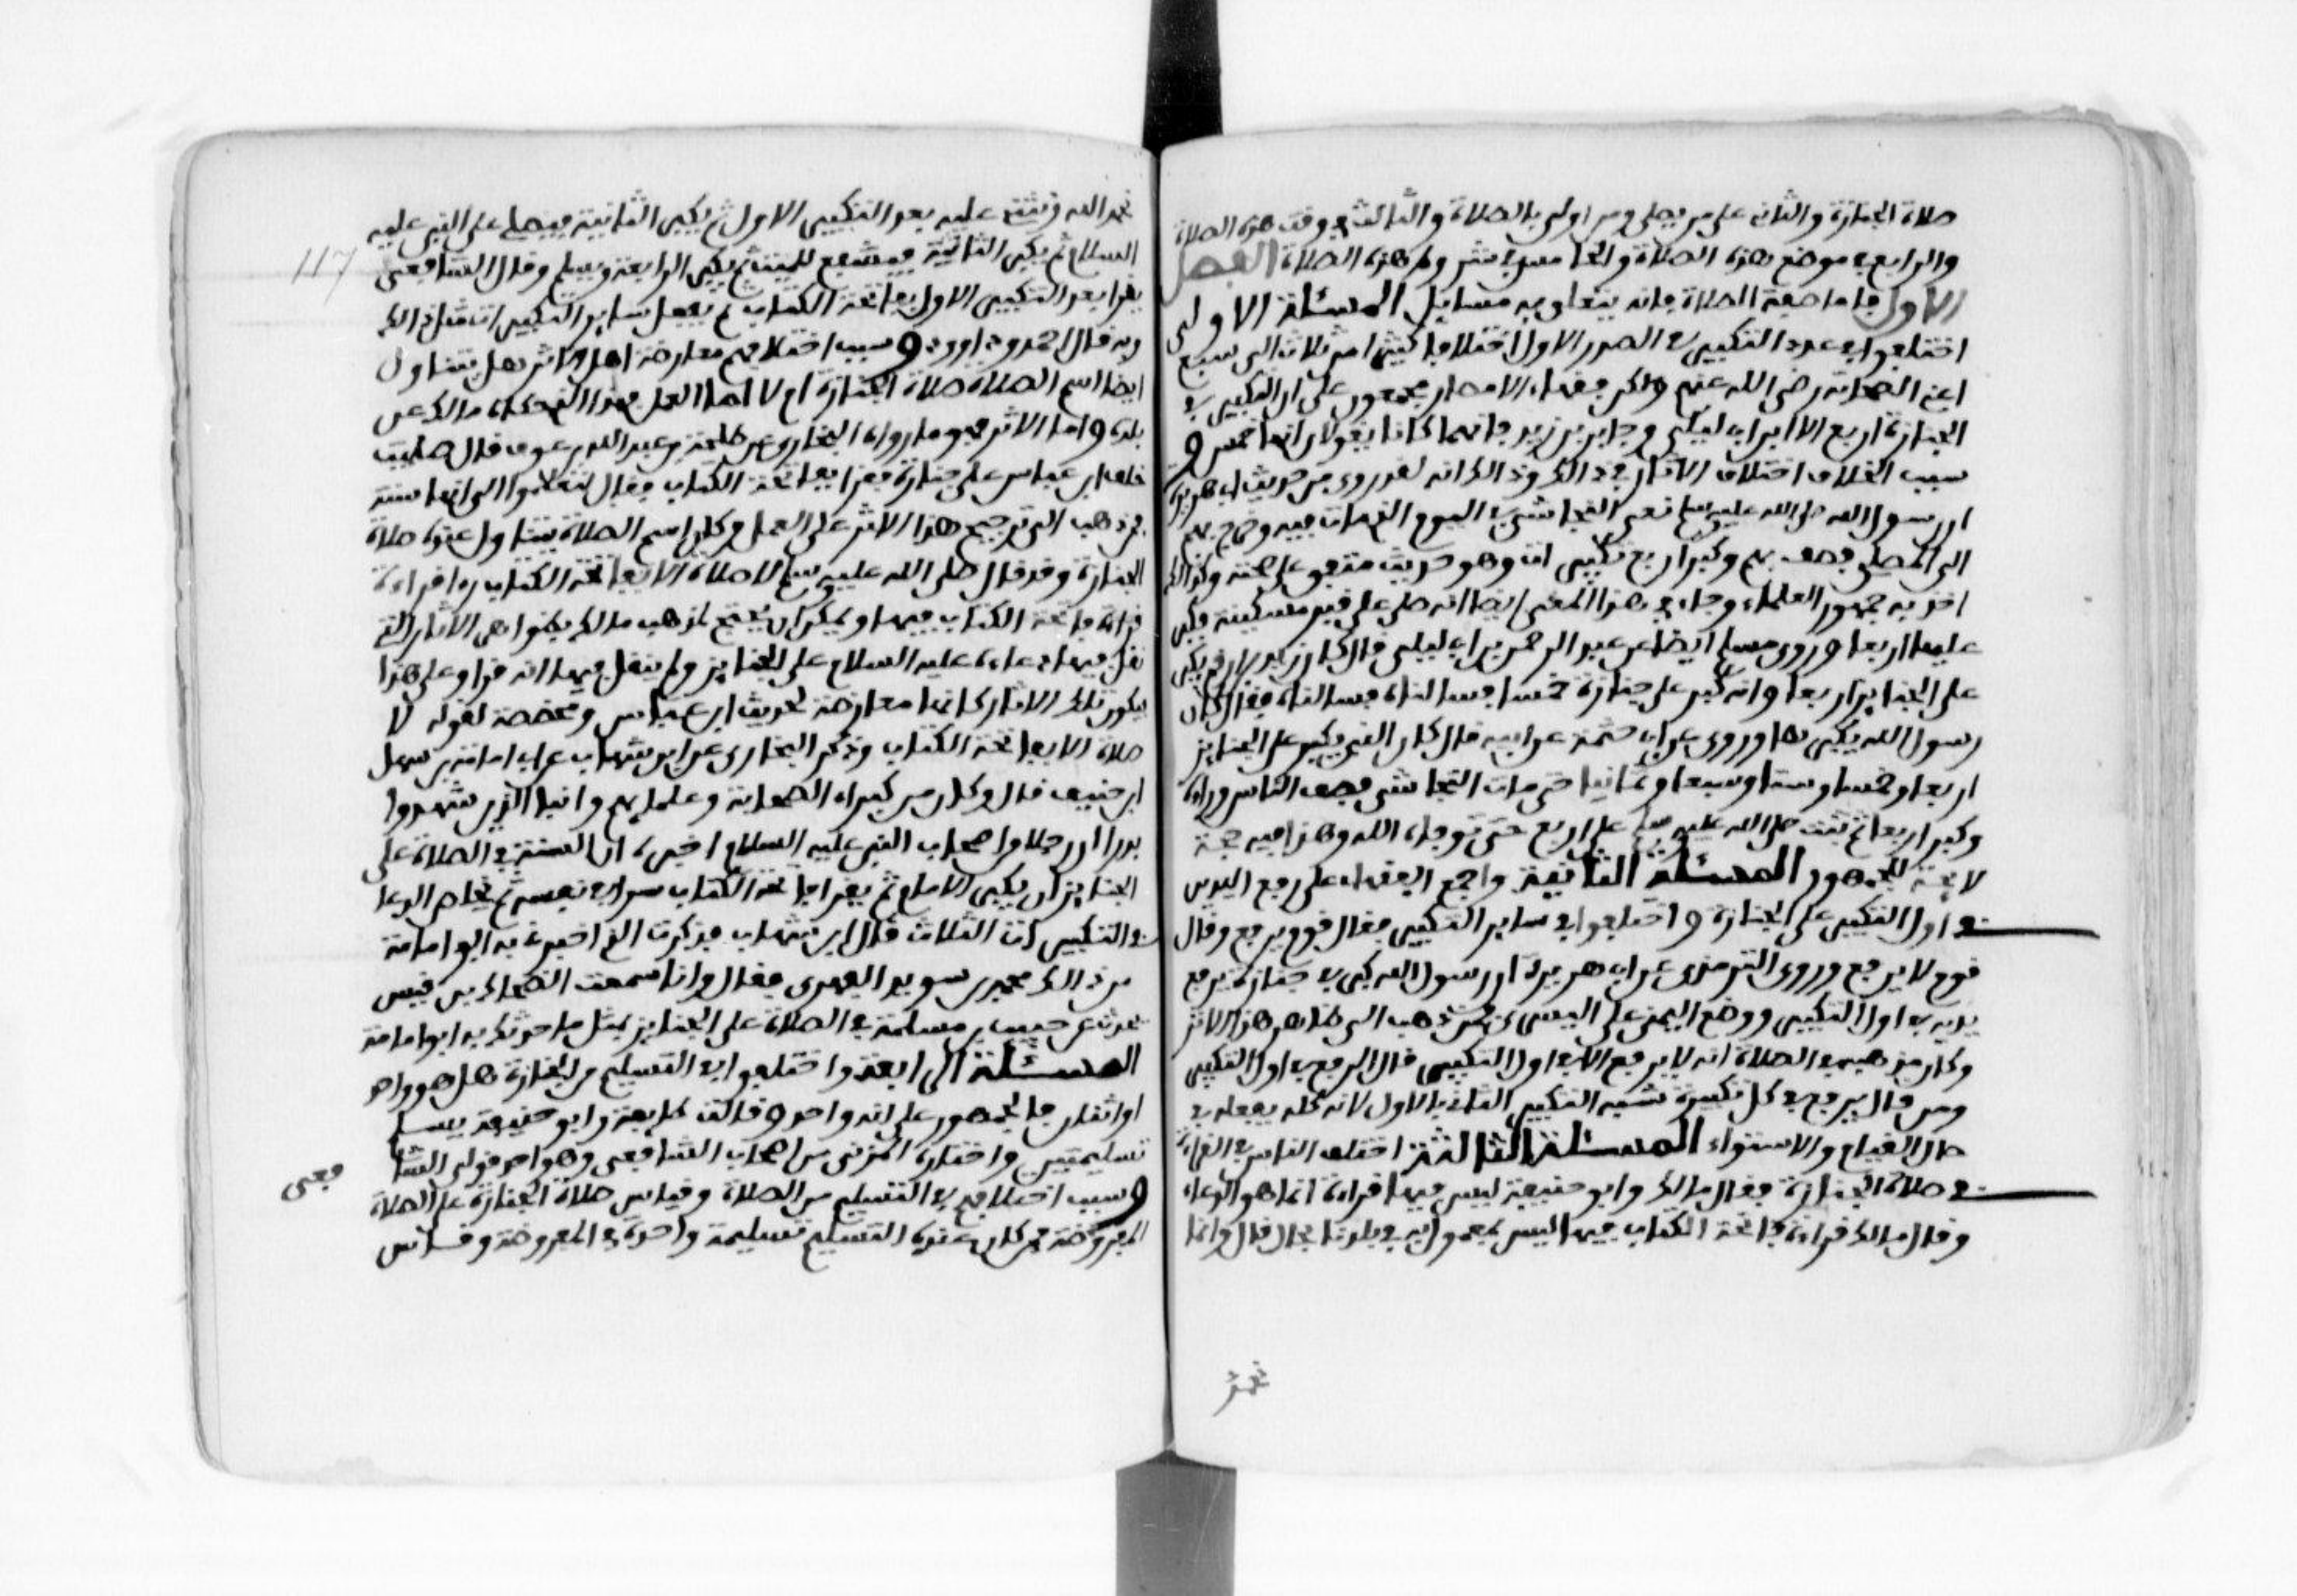 صلاة الجنازة والثاني على من يصلي ومن اولى بالصلاة والثالث في وقت هذه الصلاة
والرابع في موضع هذه الصلاة والخامس في شروط هذه الصلاة الفصل
الاول فاما صفة الصلاة فانه يتعلق به مسايل المسئلة الاولى
اختلفوا في عدد التكبير في الصدر الاول اختلافا كثيرا من ثلاث الى سبع
اعني الصحابة رضي الله عنهم ولكن فقهاء الامصار مجمعون على ان التكبير في
الجنازة اربع الا ابن ابي ليلى وجابر بن زيد فانهما كانا يقولان انها خمس و
سبب الخلاف اختلاف الآثار في ذلك وذلك انه لقد روي من حديث ابي هريرة
ان رسول الله صلى الله عليه وسلم نعى النجاشي في اليوم الذي مات فيه وخرج بهم
الى المصلى فصف بهم وكبر اربع تكبيرات وهو حديث متفق على صحته وكذلك
اخذ به جمهور العلماء وجاء في هذا المعنى ايضا انه صلى على قبر مسكينة وكبر
عليها اربعا وروى مسلم ايضا عن عبد الرحمن بن ابي ليلى قال كان زيد بن ارقم يكبر
على الجنايز اربعا وانه كبر على جنازة خمسا فسالناه فسالناه فقال كان
رسول الله يكبرها وروي عن ابي حثمة عن ابيه قال كان النبي يكبر على الجنايز
اربعا وخمسا وستا وسبعا وثمانيا حتى مات النجاشي فصف الناس وراءه
وكبر اربعا ثم ثبت صلى الله عليه وسلم على اربع حتى توفاه الله وهذا فيه حجة
لايحة للجمهور المسئلة الثانية واجمع الفقهاء على رفع اليدين
في اول التكبير على الجنازة واختلفوا في ساير التكبير فقال قوم يرفع وقال
قوم لا يرفع وروى الترمذي عن ابي هريرة ان رسول الله كبر في جنازة فرفع
يديه في اول التكبير ووضع اليمنى على اليسرى فمن ذهب الى ظاهر هذا الاثر
وكان مذهبه في الصلاة انه لا يرفع الا في اول التكبير قال الرفع في اول التكبير
ومن قال يرفع في كل تكبيرة شبه التكبير الثاني بالاول لانه كله يفعله في
حال القيام والاستواء المسئلة الثالثة اختلف الناس في القراءة
في صلاة الجنازة فقال مالك وابو حنيفة ليس فيها قراءة انما هو الدعاء
وقال مالك قراءة فاتحة الكتاب فيها ليس بمعمول به في بلدنا بحال قال وانما
تحمد
تحمد الله وتثني عليه بعد التكبير الاول ثم يكبر الثانية فيصلي على النبي عليه
السلام ثم يكبر الثالثة فيشفع للميت ثم يكبر الرابعة ويسلم وقال الشافعي
يقرا بعد التكبير الاول بفاتحة الكتاب ثم يفعل ساير التكبيرات مثل ذلك
وبه قال احمد وداوود وسبب اختلافهم معارضة العمل للاثر هل يتناول
ايضا اسم الصلاة صلاة الجنازة ام لا اما العمل فهذا الذي حكاه مالك عن
بلده واما الاثر فهو ما رواه البخاري عن طلحة بن عبد الله بن عوف قال صليت
خلف ابن عباس على جنازة فقرا بفاتحة الكتاب فقال لتعلموا انها سنة
فمن ذهب الى ترجيح هذا الاثر على العمل وكان اسم الصلاة يتناول عنده صلاة
الجنازة وقد قال صلى الله عليه وسلم لا صلاة الا بفاتحة الكتاب راى قراءة
فاتحة الكتاب فيها ويمكن ان يحتج لمذهب مالك بظواهر الآثار التي
نقل فيها دعاءه عليه السلام على الجنايز ولم ينقل فيها انه قرا وعلى هذا
فيكون تلك الاثار كانها معارضة لحديث ابن عباس ومخصصة لقوله لا
صلاة الا بفاتحة الكتاب وذكر البخاري عن ابن شهاب عن ابي امامة بن سهل
ابن حنيف قال وكان من كبراء الصحابة وعلمايهم وابناء الذين شهدوا
بدرا ان رجلا من اصحاب النبي عليه السلام اخبره ان السنة في الصلاة على
الجنايز ان يكبر الامام ثم يقرا فاتحة الكتاب سرا في نفسه ثم يخلص الدعا
في التكبيرات الثلاث قال ابن شهاب فذكرت الذي اخبرني به ابو امامة
من ذلك لمحمد بن سويد الفهري فقال وانا سمعت الضحاك بن قيس
يحدث عن حبيب بن مسلمة في الصلاة على الجنايز بمثل ما حدثك به ابو امامة
المسئلة الرابعة واختلفوا في التسليم من الجنازة هل هو واحد
او اثنان فالجمهور على انه واحد وقالت طايفة وابو حنيفة يسلم
تسليمتين واختاره المزني من اصحاب الشافعي وهو احد قولي الشا
فعي
وسبب اختلافهم في التسليم من الصلاة وقياس صلاة الجنازة على الصلاة
المفروضة فمن كان عنده التسليم تسليمة واحدة في المفروضة وقاس
117